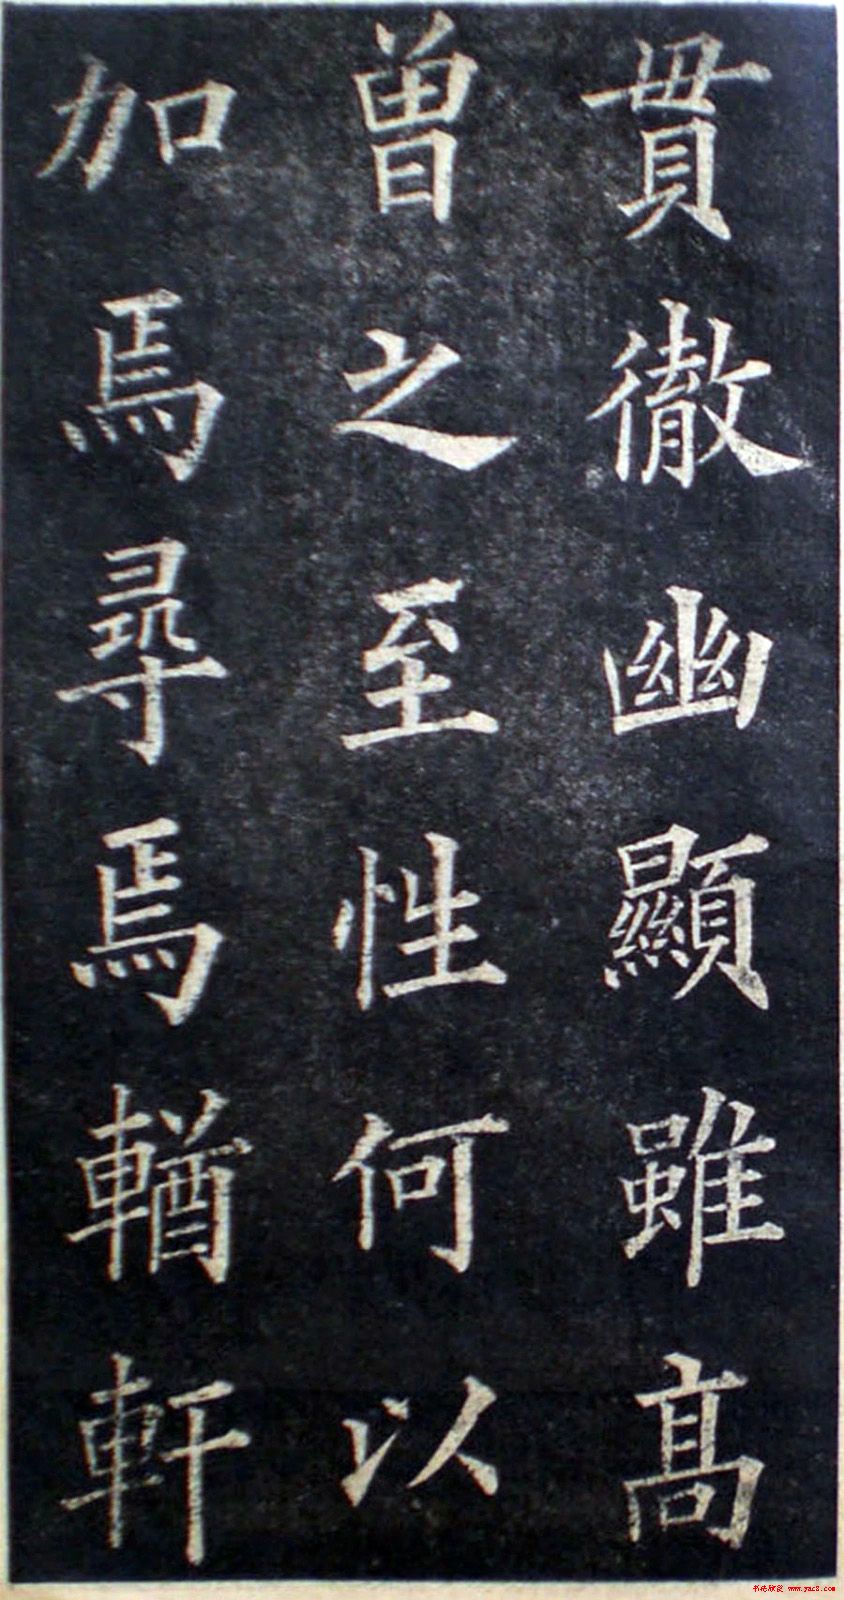 貫徹幽顯雖高
曾之至性何以
加焉尋焉輶軒
书法欣赏 www.yac8.com